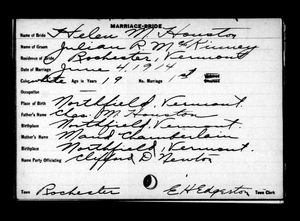 MARRIAGE-BRIDE
Name of Bride Helen M. Houston
Name of Groom Julian R. McKinney
Residence of Bride Rochester, Vermont
Date of Marriage June 4, 1914
Color white Age in Years 19 No. Marriage 1st
Occupation
Place of Birth Northfield, Vermont.
Father's Name Chas. M. Houston
Birthplace Northfield, Vermont.
Mother's Name Maud Chamberlain
Birthplace Northfield, Vermont.
Name Party Officiating Clifford D. Newton
Town Rochester E. H. Edgerton Town Clerk